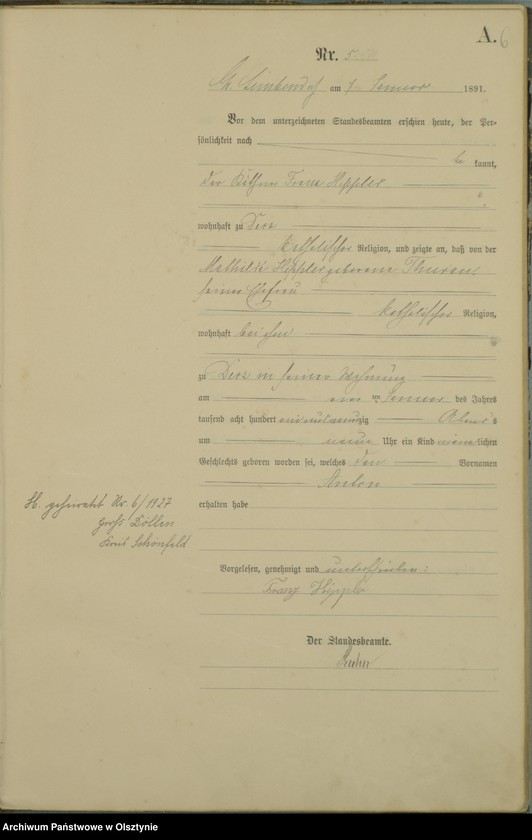 A. 6
Nr. 5
am 7. Januar 1891.
Vor dem unterzeichneten Standesbeamten erschien heute, der Per-
sönlichkeit nach
be kannt,
der Käthner Franz Hippler
wohnhaft zu
katholischer Religion, und zeigte an, daß von der
Mathilde Hippler geborene Thurau
seiner Ehefrau
katholischer Religion,
wohnhaft bei ihm
zu in seiner Wohnung
am ten Januar des Jahres
tausend acht hundert einundneunzig Abends
um neun Uhr ein Kind männlichen
Geschlechts geboren worden sei, welches den Vornamen
Anton
erhalten habe
H. geheiratet Nr. 6/1927
Groß
Kreis
Vorgelesen, genehmigt und unterschrieben:
Franz Hippler
Der Standesbeamte.
Archiwum Państwowe w Olsztynie